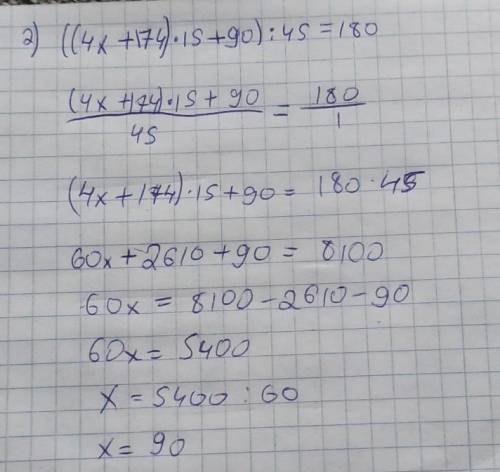 2) ((4x+174)·15+90):45=180
(4x+174)·15+90 / 45 = 180 / 1
(4x+174)·15+90 = 180·45
60x+2610+90 = 8100
60x = 8100-2610-90
60x = 5400
x = 5400 : 60
x = 90